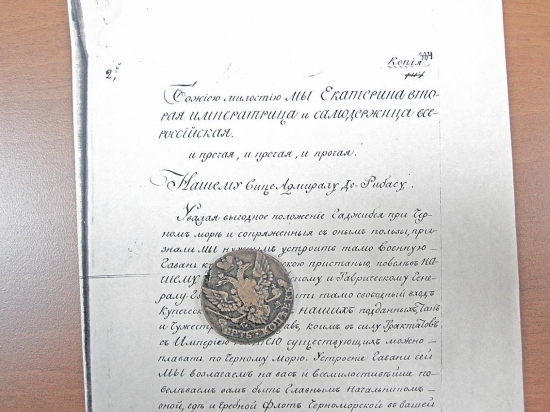 2,
Копія
Божіею милостію МЫ Екатерина вто
рая императрица и самодержица все
россійская.
и протая, и протая, и протая.
Нашему Вице Адмиралу Де-Рибасу.
Уважая выгодное положеніе Гаджибея при Чер
номъ морѣ и сопряженныя съ онымъ пользы, при
знали МЫ нужнымъ устроить тамо военную
гавань скою пристанью, повелѣвъ НА
шему ному и Таврическому Гене
ралу ити тамо свободный входъ
Купечес НАШИХЪ подданныхъ, такъ
и чужестр авъ, коимъ въ силу трактатовъ
съ Имперіею существующихъ можно
плавать по Черному Морю. Устроеніе гавани сей
МЫ возлагаемъ на васъ и всемилостивѣйше по
велѣваемъ вамъ быть Главнымъ Начальником
оной, гдѣ и Гребной Флотъ Черноморской въ вашей
ПЯТЬ КОПѢЕКЪ